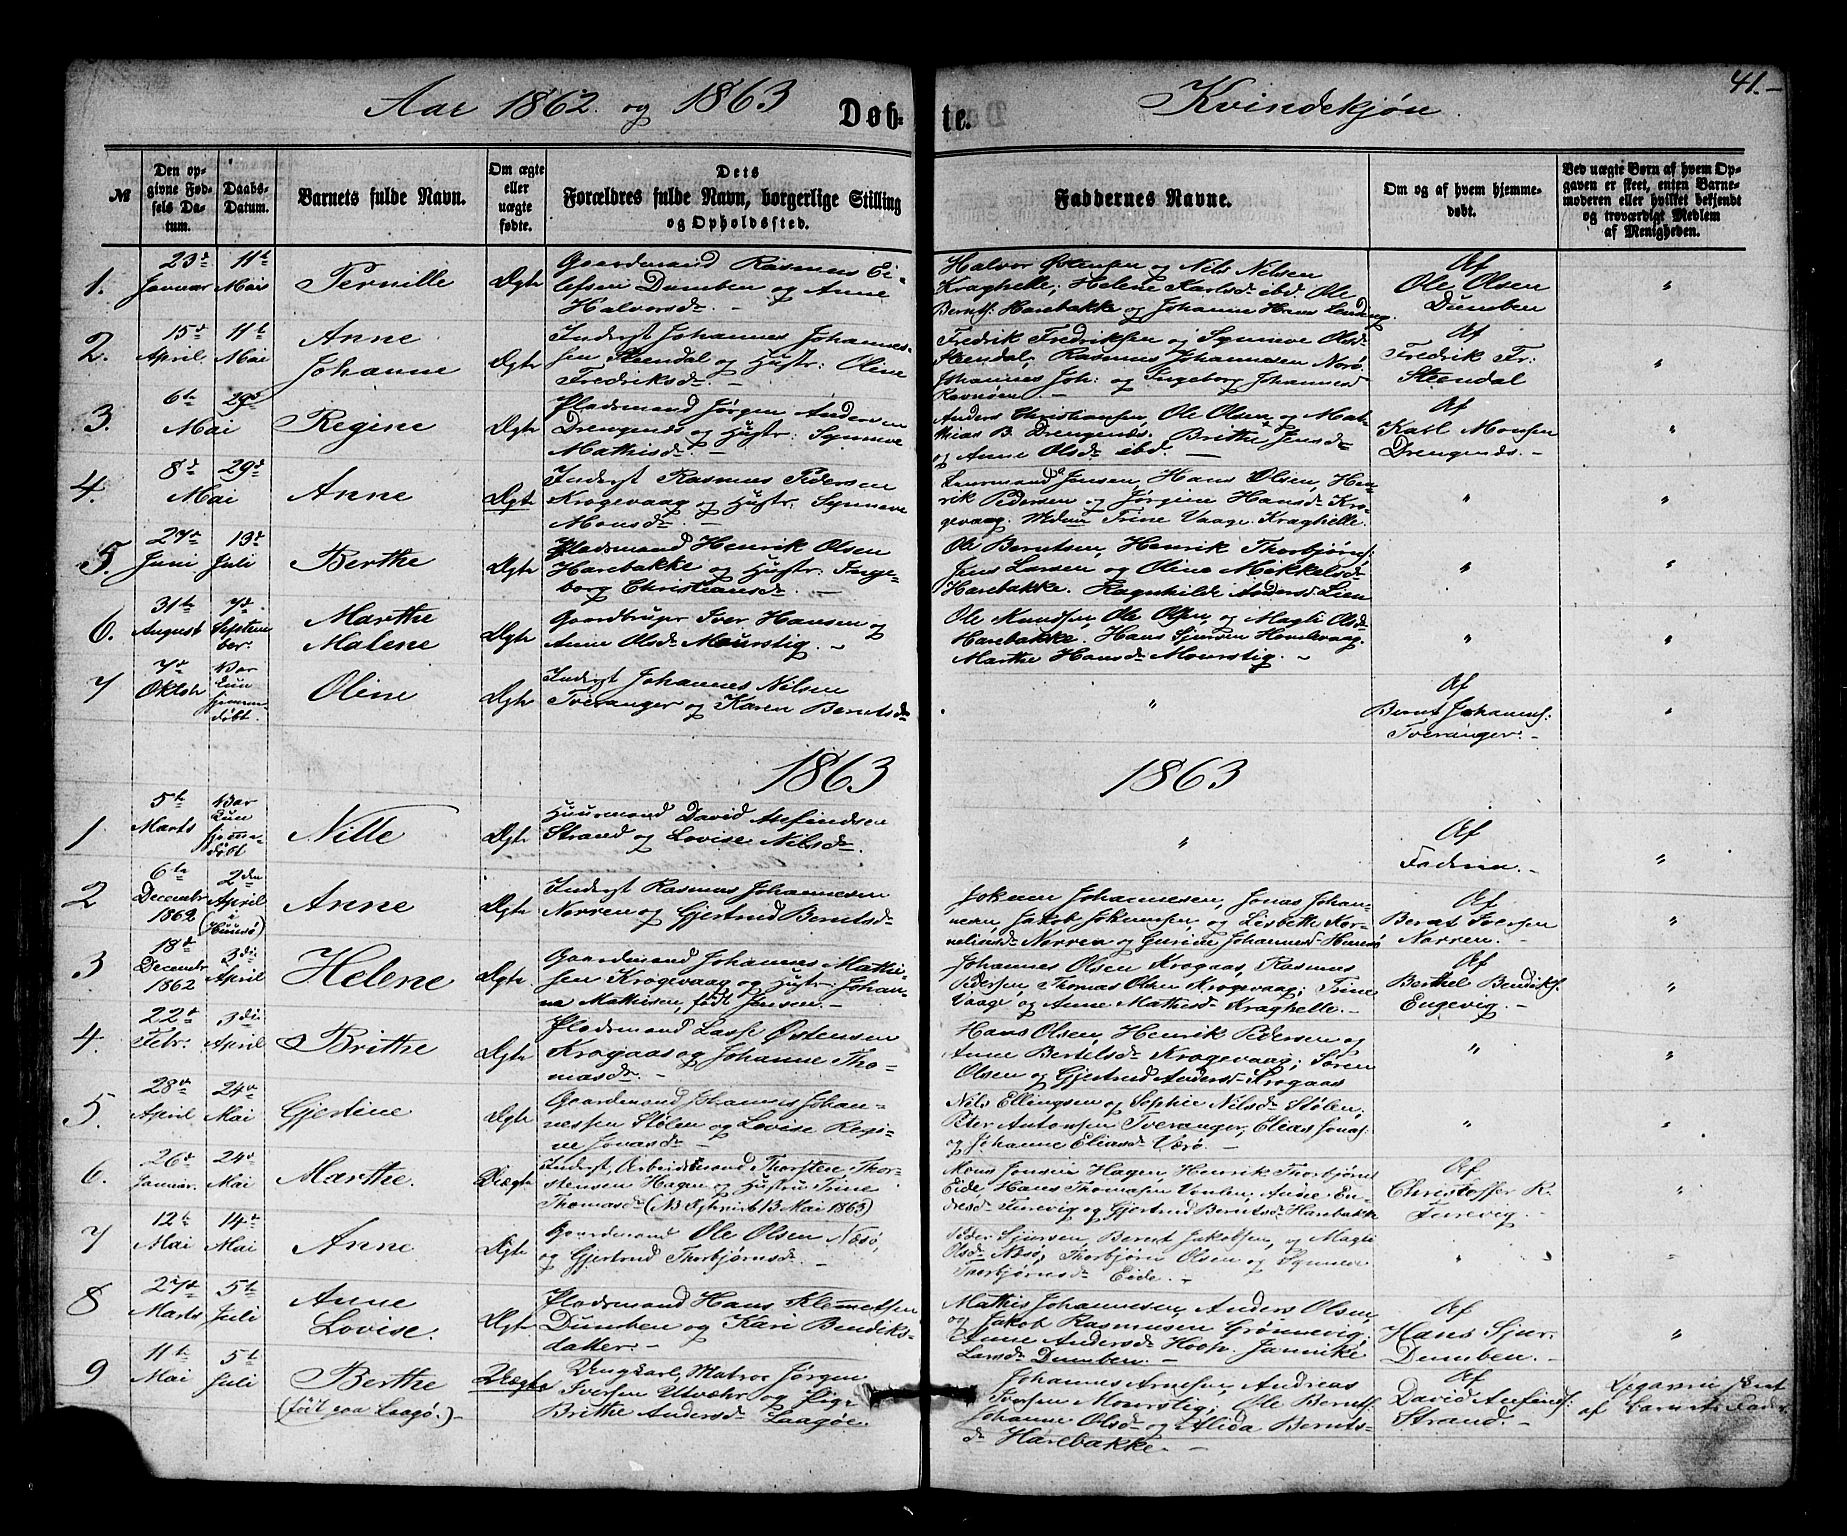 41.-
Aar 1862 og 1863
Døb-
te.
Kvindekjøn.
№
Den op-
givne Fød-
sels Da-
tum.
Daabs-
Datum.
Barnets fulde Navn.
Om ægte
eller
uægte
fødte.
Dets
Forældres fulde Navn, borgerlige Stilling
og Opholdssted.
Faddernes Navne.
Om og af hvem hjemme-
døbt.
Ved uægte Børn af hvem Op-
gaven er skeet, enten Barne-
moderen eller hvilket bekjendt
og troværdigt Medlem
af Menigheden.
1. 23d Januar
11te Mai
Pernille
Ægte
Gaardmand Rasmus Ei-
lefsen Dumben og Anne
Halvorsdr. -
Halvor Østensen og Nils Nilsen
Kraghelle; Helene Karlsdr ibd. Ole
Bernts: Harebakke og Johanne Hans
Af
Ole Olsen
Dumben
"
2. 15de April
11te Mai
Anne
Johanne
Ægte
Inderst Johannes Johannes-
sen Steendal og Hustr: Oline
Fredriksdr. -
Fredrik Fredriksen og Synneve Olsdr
Steendal; Rasmus Johannesen Norø
Johannes Joh: og Ingeborg Johannesdr
Ravnøen -
Af
Fredrik Fr:
Steendal
"
3. 6te Mai
29de
Regine
Ægte
Pladsmand Jørgen Andersen
Drengenes og Hustr: Synneve
Mathisdr. -
Anders Christiansen, Ole Olsen og Mat-
hias B. Drengenes. Brithe Jensdr
og Anne Olsdr ibd. -
Af
Karl Monsen
Drengenes. -
"
4. 8de Mai
29de
Anne
Ægte
Inderst Rasmus Pedersen
Krogevaag og Hustr: Synneve
Monsdr. -
Jensen, Hans Olsen, Hen-
rik Pedersen og Jørgine Hansdr Kro-
gevaag. Madam Trine Vaage. Kraghelle.
"
"
5. 27de Juni
19de Juli
Berthe
Ægte
Pladsmand Henrik Olsen
Harebakke og Hustr: Inge-
borg Christiansdr. -
Ole Berntsen, Henrik Thorbjørns:
Jens Larsen og Oline Mikkelsdr
Harebakke. Ragnhilde Andersdr Lien
"
"
6. 31te August
7de Septem-
ber.
Marthe
Malene
Ægte
Gaardbruger Iver Hansen og
Anne Olsdr Mourstig. -
Ole Knudsen, Ole Olsen, og Magli Olsdr
Harebakke. Hans Sjursen Hovlevaag.
Marthe Hansdr Mourstig. -
"
"
7 7de Oktob
Var
kun
hjemme-
døbt.
Oline
Ægte
Inderst Johannes Nilsen
Tveranger og Karen Berntsdr
"
Af
Bernt Johanns:
Tveranger. -
"
1863
1863
1 5te Marts
Var
kun
hjemme-
døbt
Nille
Ægte
Huusmand David Avefindsen
Strand og Lovise Nilsdr.
"
Af
Faderen. -
"
2 6te
Decembr
1862
2den
April
(i
Huusø)
Anne
Ægte
Inderst Rasmus Johannesen
Norren og Gjertrud Berntsdr
Jokum Johannesen, Jonas Johan-
nesen, Jakob Jokumsen, og Lisbeth Kor-
neliusdr Norren og Gurine Johannesdr Huusø
Af
Bernt Iversen
Norren. -
"
3 18de
Decembr
1862
3die
April
Helene
Ægte
Gaardmand Johannes Mathi-
sen Krogevaag og Hustr: Johan-
na Mathisen, født Jensen. -
Johannes Olsen Krogaas, Rasmus
Pedersen, Thomas Olsen Krogevaag; Trine
Vaage og Anne Mathisdr Kraghelle. -
Af
Berthel Bendiks:
Engevig. -
"
4. 22de
Febr.
3die
April
Brithe
Ægte
Pladsmand Lasse Østensen
Krogaas og Johanne Tho-
masdr. -
Hans Olsen, Henrik Pedersen og
Anne Bertelsdr Krogevaag; Søren
Olsen og Gjertrud Andersdr Krogaas
"
"
5. 28de
April
24de
Mai
Gjertine
Ægte
Gaardmand Johannes Johan-
nessen Stølen og Lovise Regi-
ne Jonasdr -
Nils Ellingsen og Sophie Nilsdr Stølen;
Peter Antonsen Tveranger; Elias Jonas:
og Johanne Eliasdr Værø. -
"
"
6. 26de
Januar.
24de
Mai
Marthe.
Uægte
Inderst, Arbeidsmand Thorsten Thor-
stensen Hagen og Hustru Trine
Thomasdr (NB
Mons Jonsen Hagen, Henrik Thorbjørns
Eide, Hans Thomasen; Anne En-
dresdr Furevig og Gjertrud Berntsdr Harebakke
Af
Christoffer R.
Furevig. -
"
7 12te
Mai
14de
Mai
Anne
Ægte
Gaardmand Ole Olsen Næsø,
og Gjertrud Thorbjørnsdr. -
Peder Sjursen, Bernt Jakobsen, og Magli
Olsdr Næsø; Thorbjørn Olsen og Synneve
Thorbjørnsdr Eide. -
"
"
8 27de
Marts
5te
Juli
Anne
Lovise.
Ægte
Pladsmand Hans Klemetsen
Dumben og Kari Bendiks-
datter. -
Mathis Johannesen, Anders Olsen,
og Jakob Rasmusen Grønnevig;
Anne Andersdr Hoop. Jannike
Larsdr Dumben. -
Af
Hans Sjur:
Dumben. -
"
9 11te
Mai
5te
Juli
Berthe
(født paa Laagø.) -
Uægte
Ungkarl, Matros Jørgen
Iversen Utvær og Pige
Brithe Andersdr Laagøe.
Johannes Arnesen, Andreas
Iversen Mourstig; Ole Bernts:
Johanne Olsdr og Alida Bernts-
dr Harebakke. -
Af
David Avefinds:
Strand. -
Opgaven skeet
af Barnets Fader.